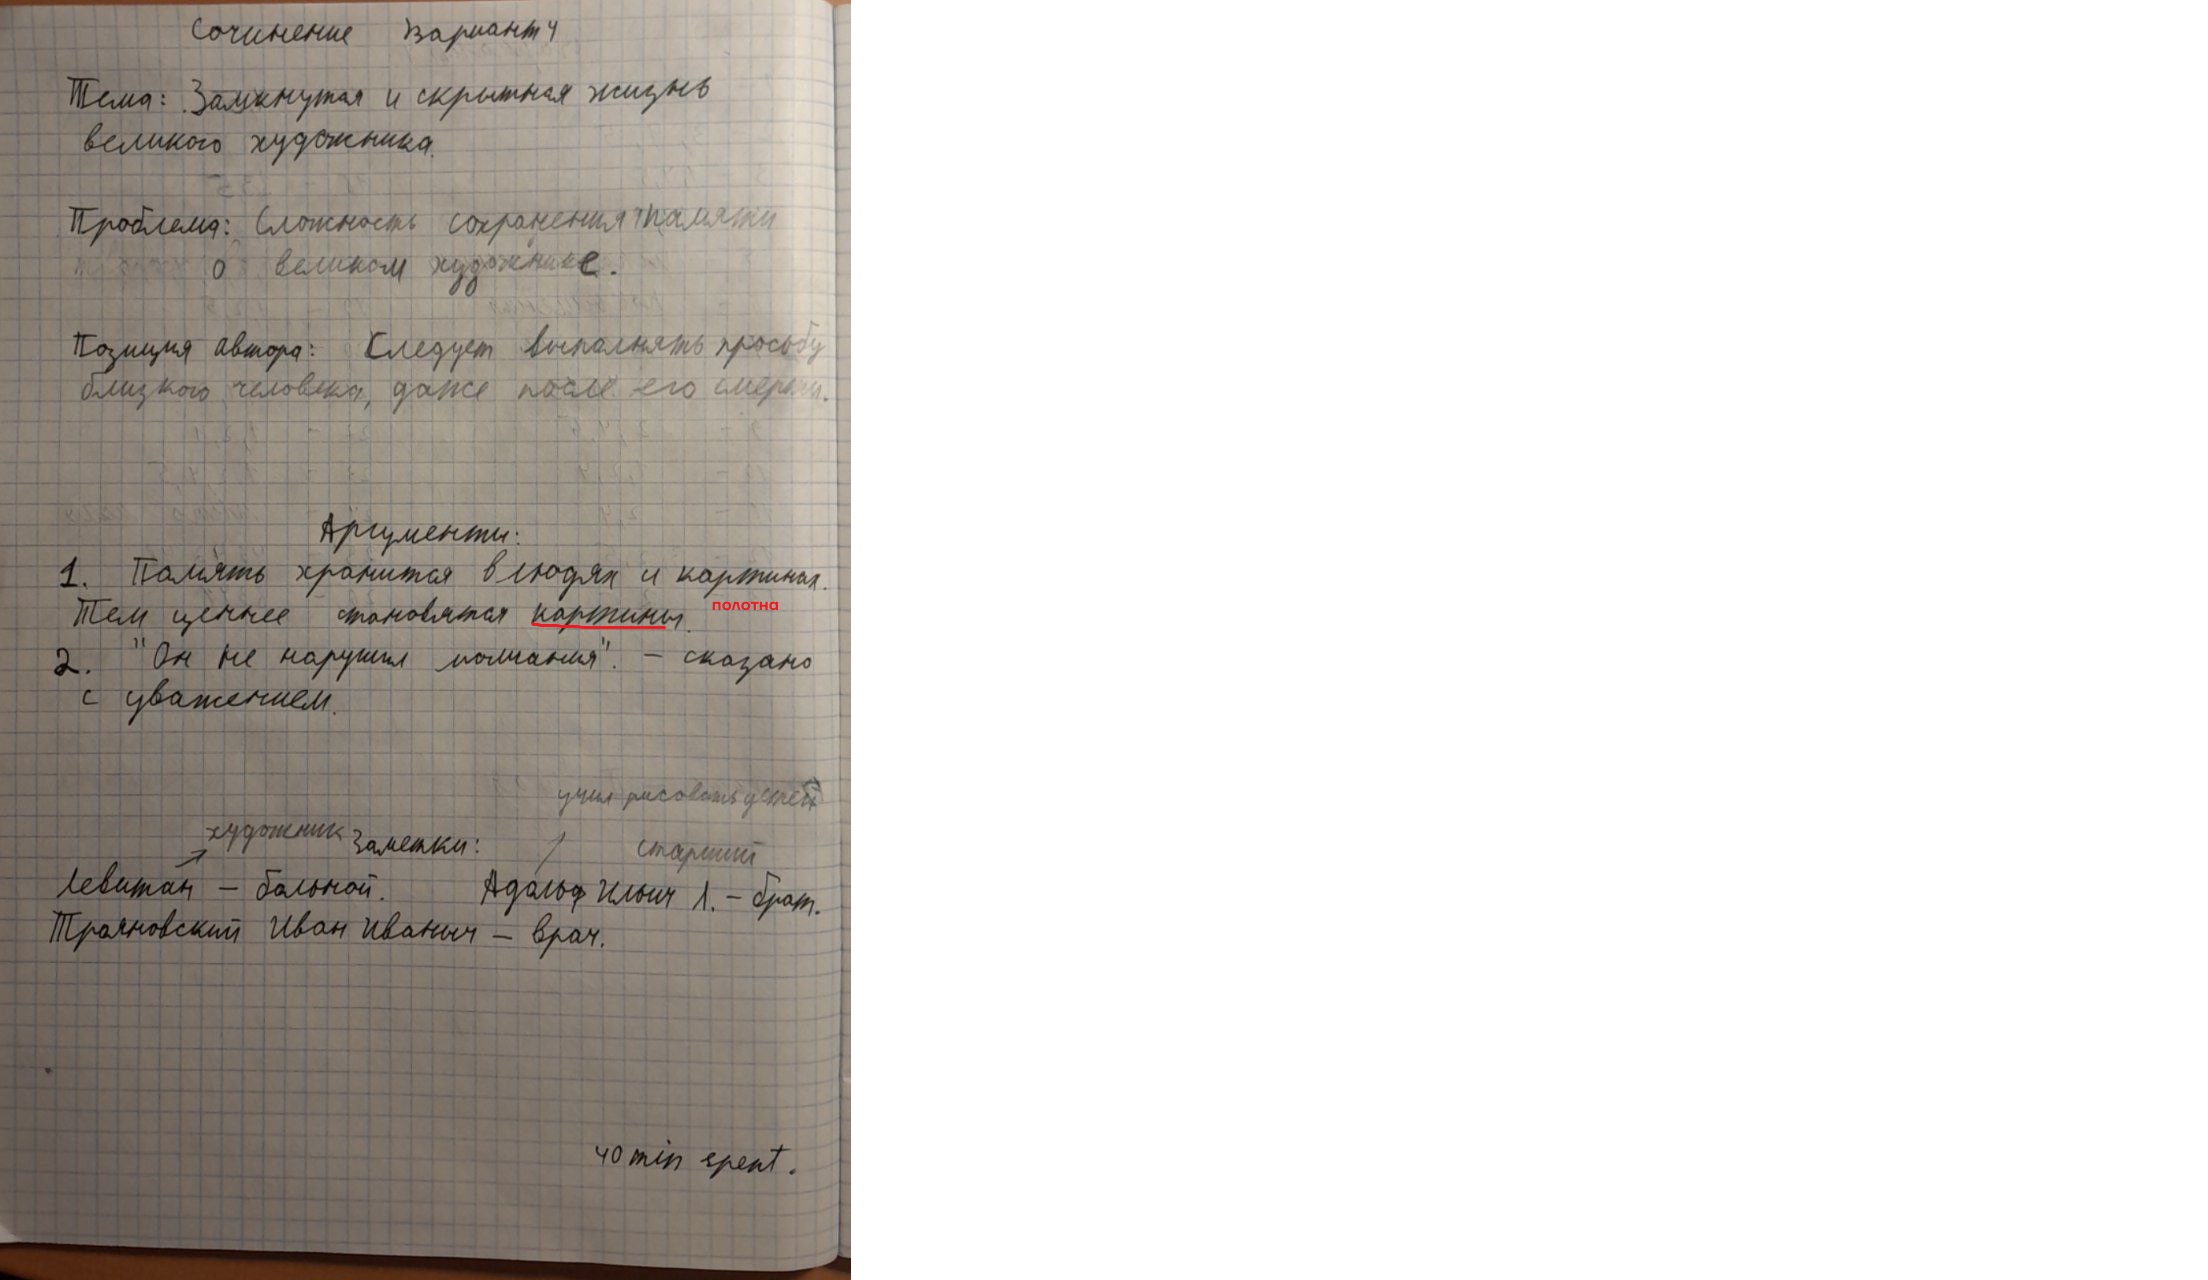 Сочинение Вариант 4
Тема: Замкнутая и скрытная жизнь
великого художника.
Проблема: Сложность сохранения памяти
о великом художнике.
Позиция автора: Следует выполнять просьбу
близкого человека, даже после его смерти.
Аргументы:
1. Память хранится в людях и картинах.
полотна
Тем ценнее становятся картины.
2. "Он не нарушил молчания". - сказано
с уважением.
учил рисовать детей
художник Заметки: старший
Левитан - больной. Адольф Ильич Л. - брат.
Трояновский Иван Иваныч - врач.
40 min spent.